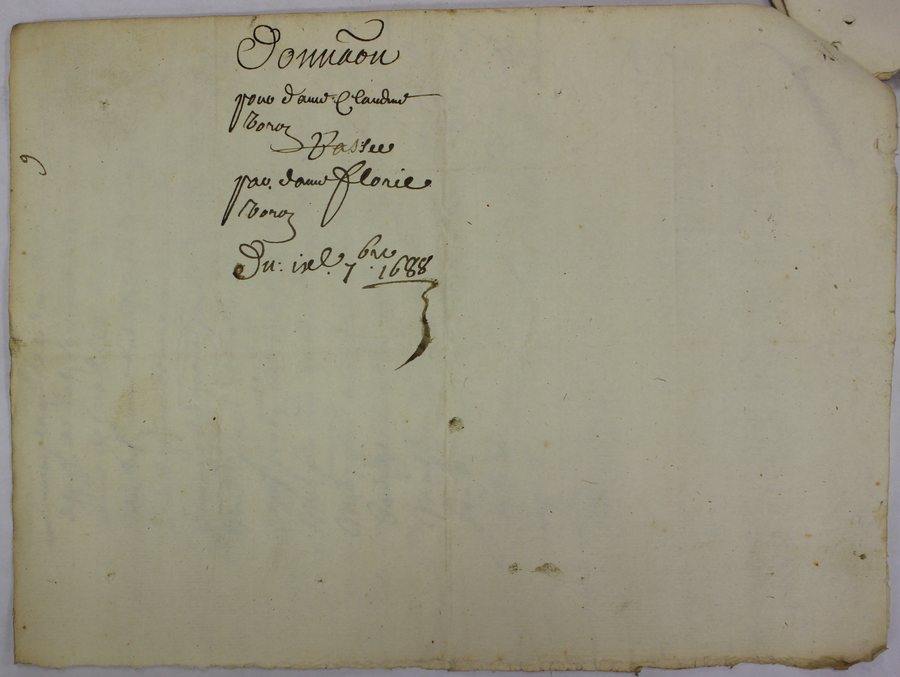 Donnãon
pour dame Claudine
Boroz
Passee
par dame florie
Boroz
Du: ixe. 7bre 1688
9